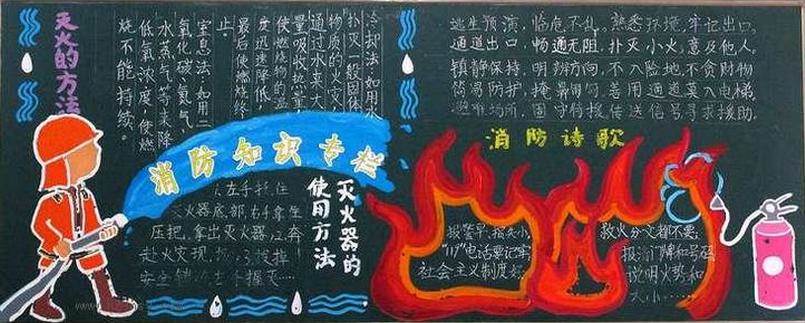 灭火的方法
冷却法:如用水
扑灭一般固体
物质的火灾,
通过水来大
量吸收热量,
使燃烧物的温
度迅速降低,
最后使燃烧终
止。
窒息法:如用二
氧化碳、氮气、
水蒸气等来降
低氧浓度,使燃
烧不能持续。
逃生预演,临危不乱。熟悉环境,牢记出口。
通道出口,畅通无阻。扑灭小火,惠及他人。
镇静保持,明辨方向,不入险地,不贪财物
简易防护,掩鼻匍匐。善用通道,莫入电梯。
避难场所,固守待援。传送信号,寻求援助。
消防知识专栏
消防诗歌
灭火器的
使用方法
左手托住
灭火器底部,右手拿
压把,拿出灭火器,2.奔
赴火
报警早,损失小,
"119"电话要记牢
社会主义制度好,
救火分文都不要。
报清门牌和号码
说明火势和
大小……